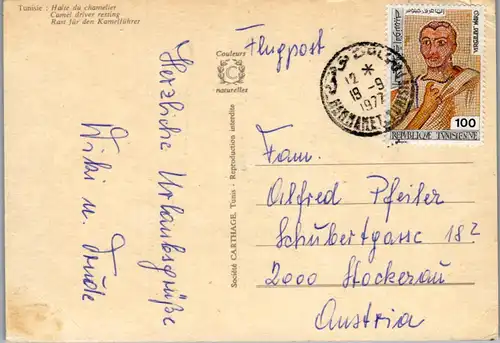 Tunisie : Halte du chamelier
Camel driver resting
Rast für den Kamelführer
Couleurs
C
naturelles
Société CARTHAGE, Tunis - Reproduction interdite
Flugpost
12 *
18 - 9
1977
100
REPUBLIQUE TUNISIENNE
Herzliche Urlaubsgrüße
Wiki u. Trude
Fam.
Alfred Pfeiler
Schubertgasse 18
2000 Stockerau
Austria